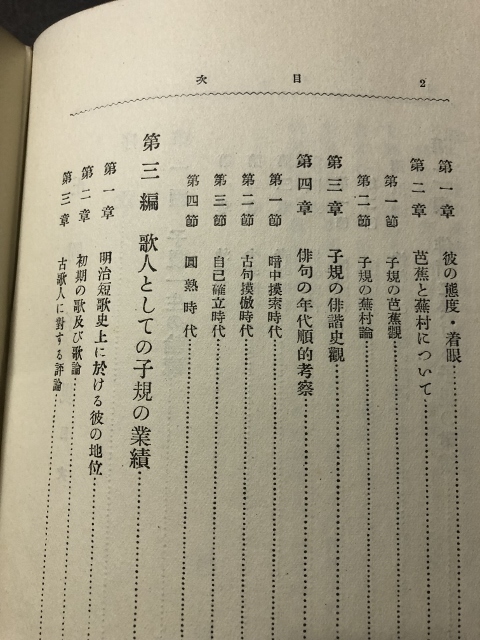 目次 2
第一章 彼の態度・着眼
第二章 芭蕉と蕪村について
第一節 子規の芭蕉觀
第二節 子規の蕪村論
第三章 子規の俳諧史觀
第四章 俳句の年代順的考察
第一節 暗中摸索時代
第二節 古句摸倣時代
第三節 自己確立時代
第四節 圓熟時代
第三編 歌人としての子規の業績
第一章 明治短歌史上に於ける彼の地位
第二章 初期の歌及び歌論
第三章 古歌人に對する評論